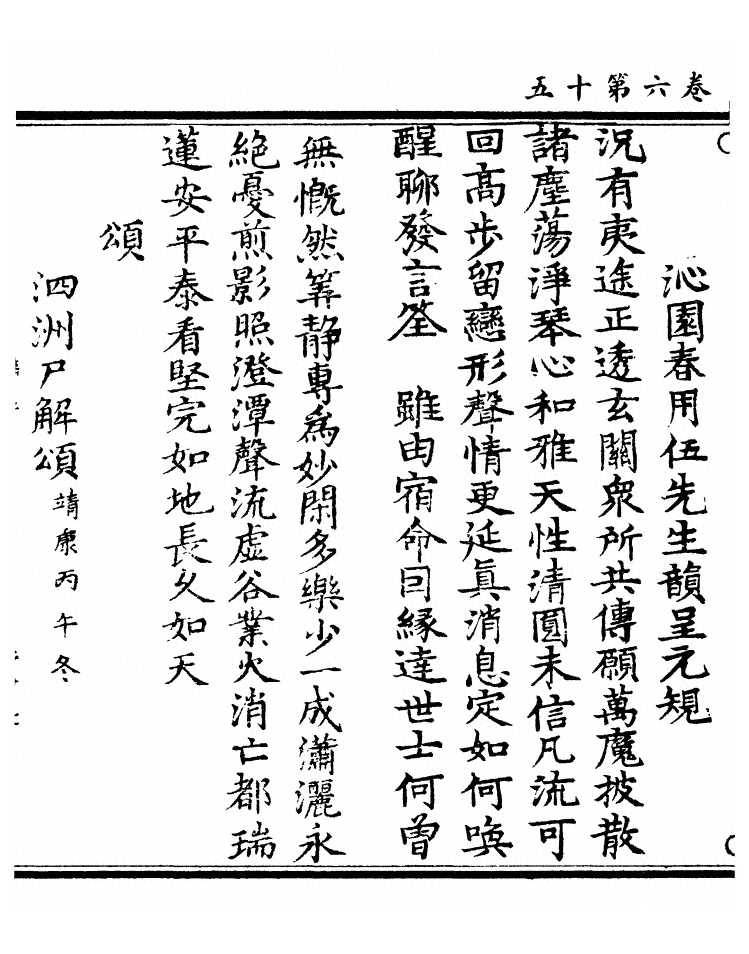 卷六第十五
沁園春用伍先生韻呈元規
況有夷途正透玄關眾所共傳願萬魔披散
諸塵蕩淨琴心和雅天性清圓未信凡流可
回高步留戀形聲情更延真消息定如何喚
醒聊發言筌　雖由宿命回緣達世士何曾
無慨然筭靜專為妙閑多樂少一成瀟灑永
絕憂煎影照澄潭聲流虛谷業火消亡都瑞
蓮安平泰看堅完如地長久如天
頌
泗洲尸解頌靖康丙午冬